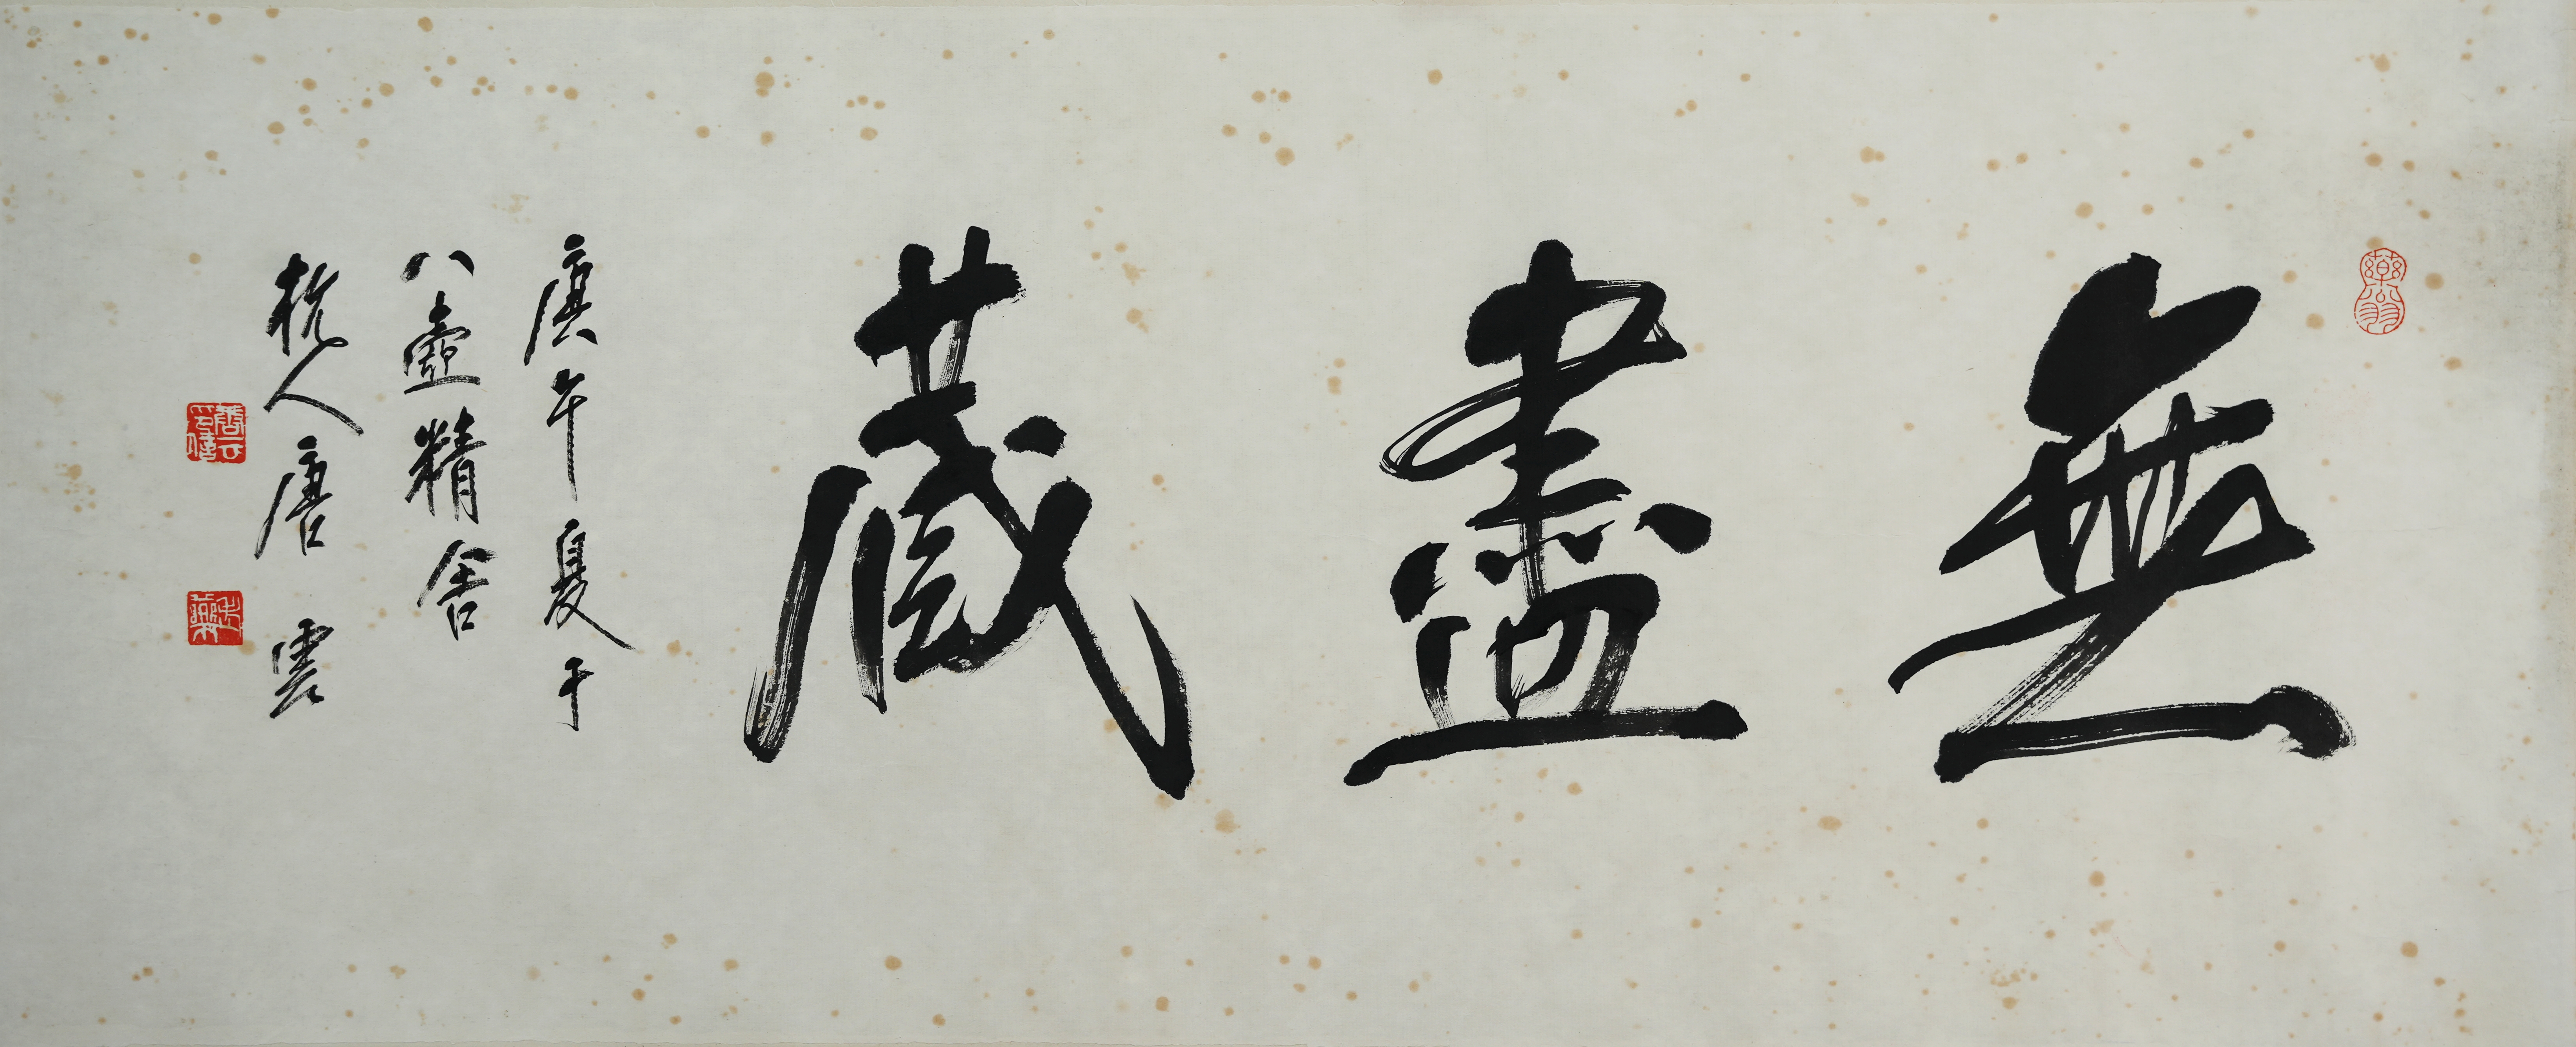 無盡藏
庚午夏于
八壺精舍
杭人唐雲
藥翁